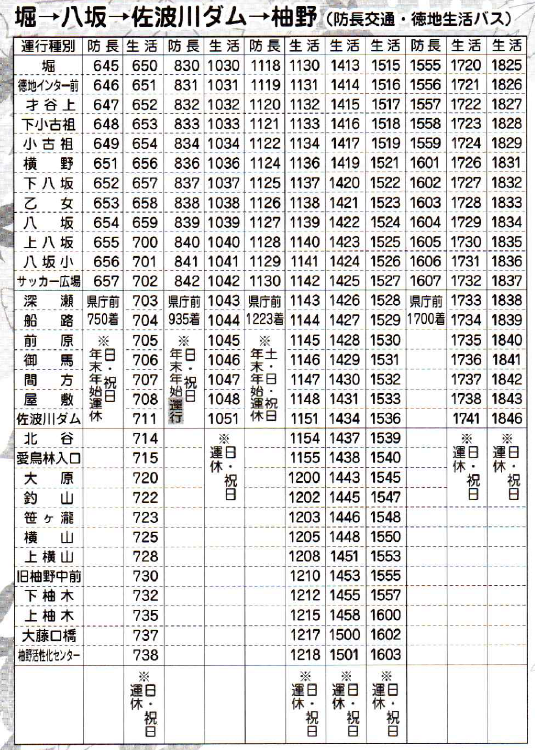 堀→八坂→佐波川ダム→柚野（防長交通・徳地生活バス）
運行種別 防長 生活 防長 生活 防長 生活 生活 生活 防長 生活 生活
堀 645 650 830 1030 1118 1130 1413 1515 1555 1720 1825
徳地インター前 646 651 831 1031 1119 1131 1414 1516 1556 1721 1826
才谷上 647 652 832 1032 1120 1132 1415 1517 1557 1722 1827
下小古祖 648 653 833 1033 1121 1133 1416 1518 1558 1723 1828
小古祖 649 654 834 1034 1122 1134 1417 1519 1559 1724 1829
横野 651 656 836 1036 1124 1136 1419 1521 1601 1726 1831
下八坂 652 657 837 1037 1125 1137 1420 1522 1602 1727 1832
乙女 653 658 838 1038 1126 1138 1421 1523 1603 1728 1833
八坂 654 659 839 1039 1127 1139 1422 1524 1604 1729 1834
上八坂 655 700 840 1040 1128 1140 1423 1525 1605 1730 1835
八坂小 656 701 841 1041 1129 1141 1424 1526 1606 1731 1836
サッカー広場 657 702 842 1042 1130 1142 1425 1527 1607 1732 1837
深瀬 県庁前 703 県庁前 1043 県庁前 1143 1426 1528 県庁前 1733 1838
船路 750着 704 935着 1044 1223着 1144 1427 1529 1700着 1734 1839
前原 705 1045 1145 1428 1530 1735 1840
御馬 706 1046 1146 1429 1531 1736 1841
間方 707 1047 1147 1430 1532 1737 1842
屋敷 708 1048 1148 1431 1533 1738 1843
佐波川ダム 711 1051 1151 1434 1536 1741 1846
※日・祝日年末年始運休
※日・祝日年末年始運行
※土・日・祝日年末年始運休
北谷 714 1154 1437 1539
愛鳥林入口 715 1155 1438 1540
大原 720 1200 1443 1545
釣山 722 1202 1445 1547
笹ヶ瀧 723 1203 1446 1548
横山 725 1205 1448 1550
上横山 728 1208 1451 1553
旧柚野中前 730 1210 1453 1555
下柚木 732 1212 1455 1557
上柚木 735 1215 1458 1600
大藤口橋 737 1217 1500 1602
柚野活性化センター 738 1218 1501 1603
※日・祝日運休
※日・祝日運休
※日・祝日運休
※日・祝日運休
※日・祝日運休
※日・祝日運休
※日・祝日運休